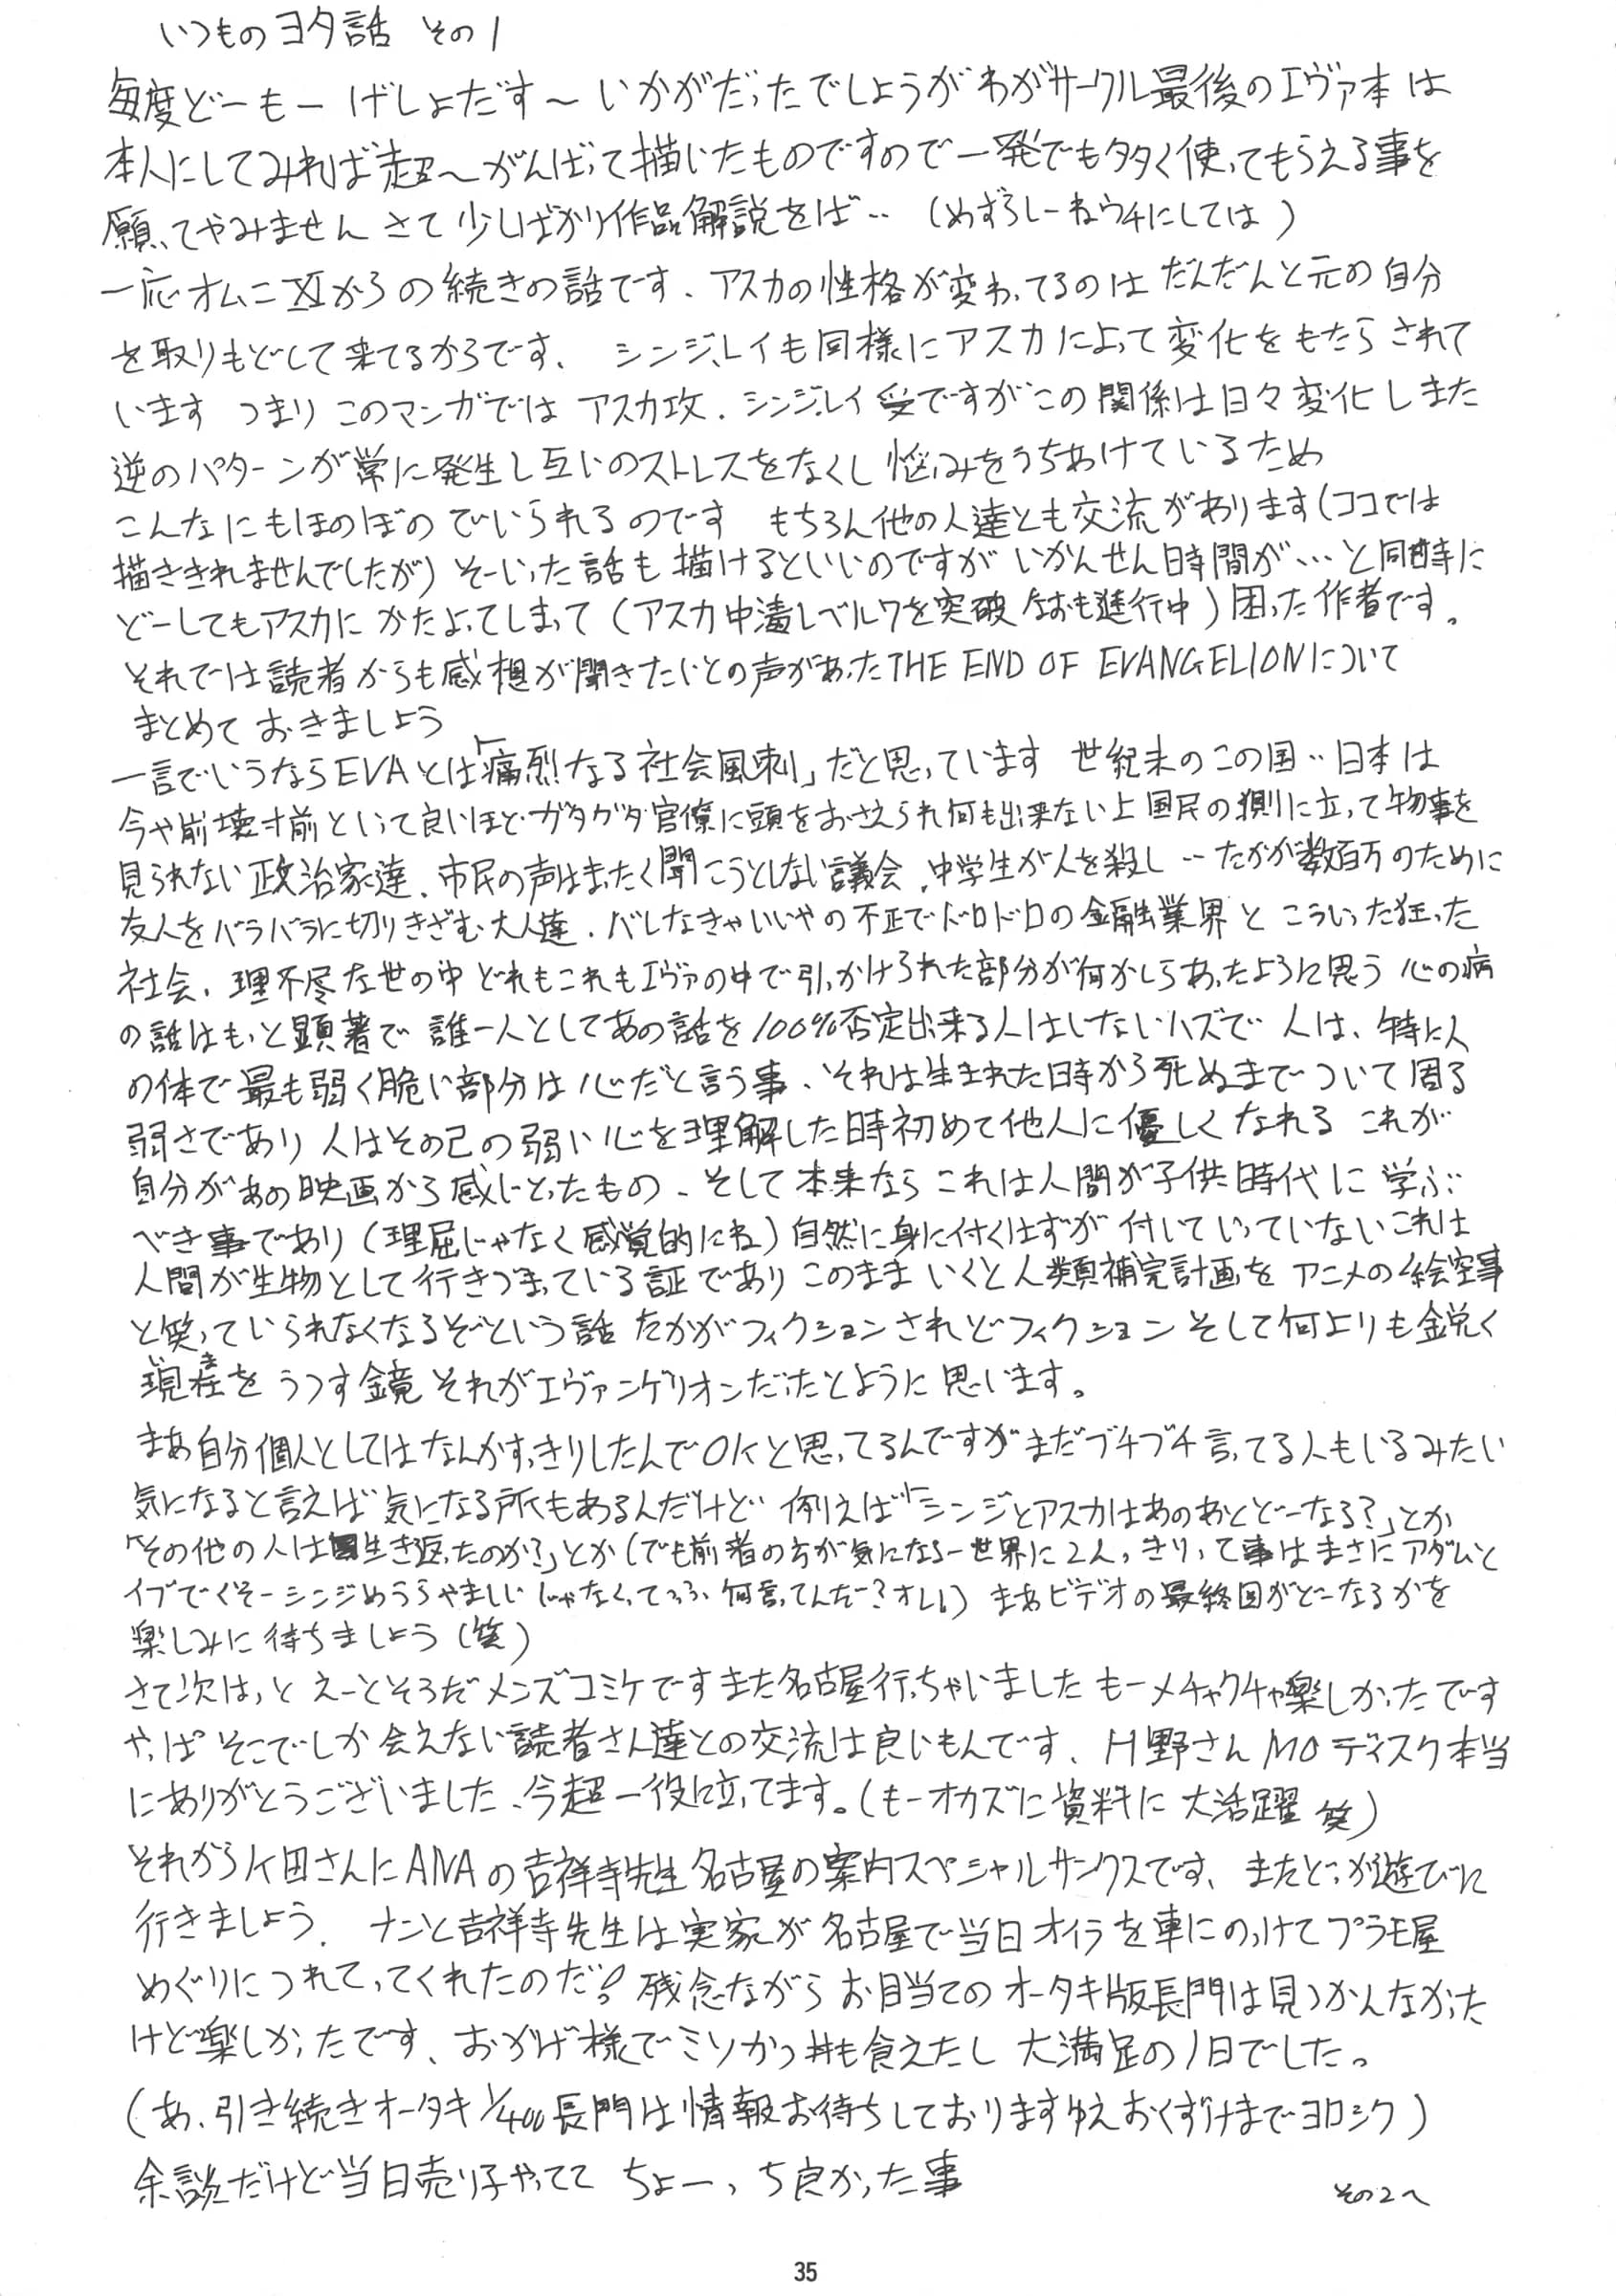 いつものヨタ話 その1
毎度どーもー げしょだす〜 いかがだったでしょうが わがサークル最後のエヴァ本は
本人にしてみれば超〜がんばって描いたものですので一発でも多く使ってもらえる事を
願ってやみません さて少しばかり作品解説をば‥ (めずらしーねウチにしては)
一応オムニXIからの続きの話です、アスカの性格が変わってるのはだんだんと元の自分
を取りもどして来てるからです、 シンジ、レイも同様にアスカによって変化をもたらされて
います つまりこのマンガではアスカ攻、シンジ、レイ受ですがこの関係は日々変化しまた
逆のパターンが常に発生し互いのストレスをなくし悩みをうちあけているため
こんなにもほのぼのでいられるのです もちろん他の人達とも交流があります(ココでは
描ききれませんでしたが) そーいった話も描けるといいのですがいかんせん時間が…と同時に
どーしてもアスカにかたよってしまって(アスカ中毒レベル7を突破なおも進行中)困った作者です。
それでは読者からも感想が聞きたいとの声があったTHE END OF EVANGELIONについて
まとめておきましょう
一言でいうならEVAとは「痛烈なる社会風刺」だと思っています 世紀末のこの国‥日本は
今や崩壊寸前といって良いほどガタガタ官僚に頭をおさえられ何も出来ない上国民の側に立って物事を
見られない政治家達、市民の声はまったく聞こうとしない議会、中学生が人を殺し‥たかが数百万のために
友人をバラバラに切りきざむ大人達、バレなきゃいいやの不正でドロドロの金融業界とこういった狂った
社会、理不尽な世の中どれもこれもエヴァの中で引っかけられた部分が何かしらあったように思う 心の病
の話はもっと顕著で誰一人としてあの話を100%否定出来る人はしないハズで人は、特に人
の体で最も弱く脆い部分は心だと言う事、それは生まれた時から死ぬまでついて周る
弱さであり人はその己の弱い心を理解した時初めて他人に優しくなれる これが
自分があの映画から感じとったもの、そして本来ならこれは人間が子供時代に学ぶ
べき事であり(理屈じゃなく感覚的にね)自然に身に付くはずが付いていっていないこれは
人間が生物として行きづまっている証でありこのままいくと人類補完計画をアニメの絵空事
と笑っていられなくなるぞという話 たかがフィクションされどフィクション そして何よりも鋭く
現在をうつす鏡それがエヴァンゲリオンだったとように思います。
まあ自分個人としてはなんかすっきりしたんでOKと思ってるんですがまだブチブチ言ってる人もいるみたい
気になると言えば気になる所もあるんだけど 例えば「シンジとアスカはあのあとどーなる?」とか
「その他の人は生き返ったのか?」とか(でも前者の方が気になるー世界に2人っきりって事はまさにアダムと
イブでくそーシンジめうらやましい じゃなくってっふ 何言ってんだー?オレ) まあビデオの最終回がどーなるかを
楽しみに待ちましょう(笑)
さて次は、と えーとそうだメンズコミケです また名古屋行っちゃいました もーメチャクチャ楽しかったです
やっぱそこでしか会えない読者さん達との交流は良いもんです、H野さんMOディスク本当
にありがとうございました、今超一役に立ってます。(もーオカズに資料に大活躍 笑)
それからK田さんにANAの吉祥寺先生名古屋の案内スペシャルサンクスです、またどっか遊びに
行きましょう、 ナンと吉祥寺先生は実家が名古屋で当日オイラを車にのっけてプラモ屋
めぐりにつれてってくれたのだ! 残念ながらお目当てのオータキ版長門は見つかんなかった
けど楽しかったです、おかげ様でミソかつ丼も食えたし 大満足の1日でした。
(あ、引き続きオータキ1/400長門は情報お待ちしておりますゆえおくずけまでヨロシク)
余談だけど当日売り子やってて ちょーっち良かった事
その2へ
35